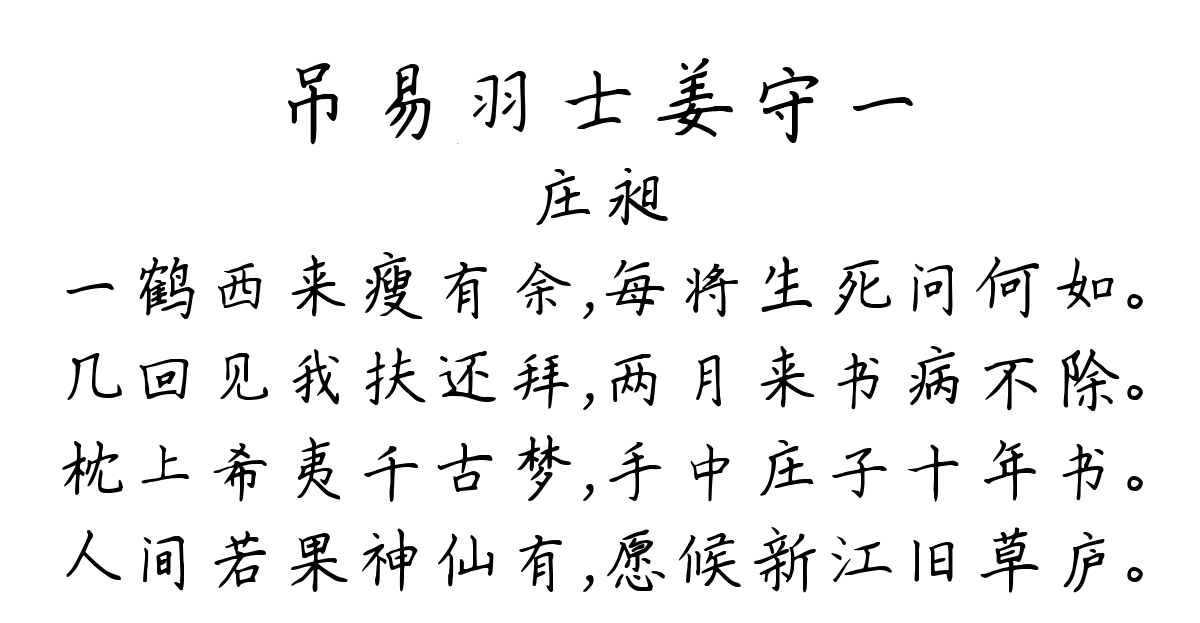 吊易羽士姜守一
庄昶
一鹤西来瘦有余,每将生死问何如。
几回见我扶还拜,两月来书病不除。
枕上希夷千古梦,手中庄子十年书。
人间若果神仙有,愿候新江旧草庐。